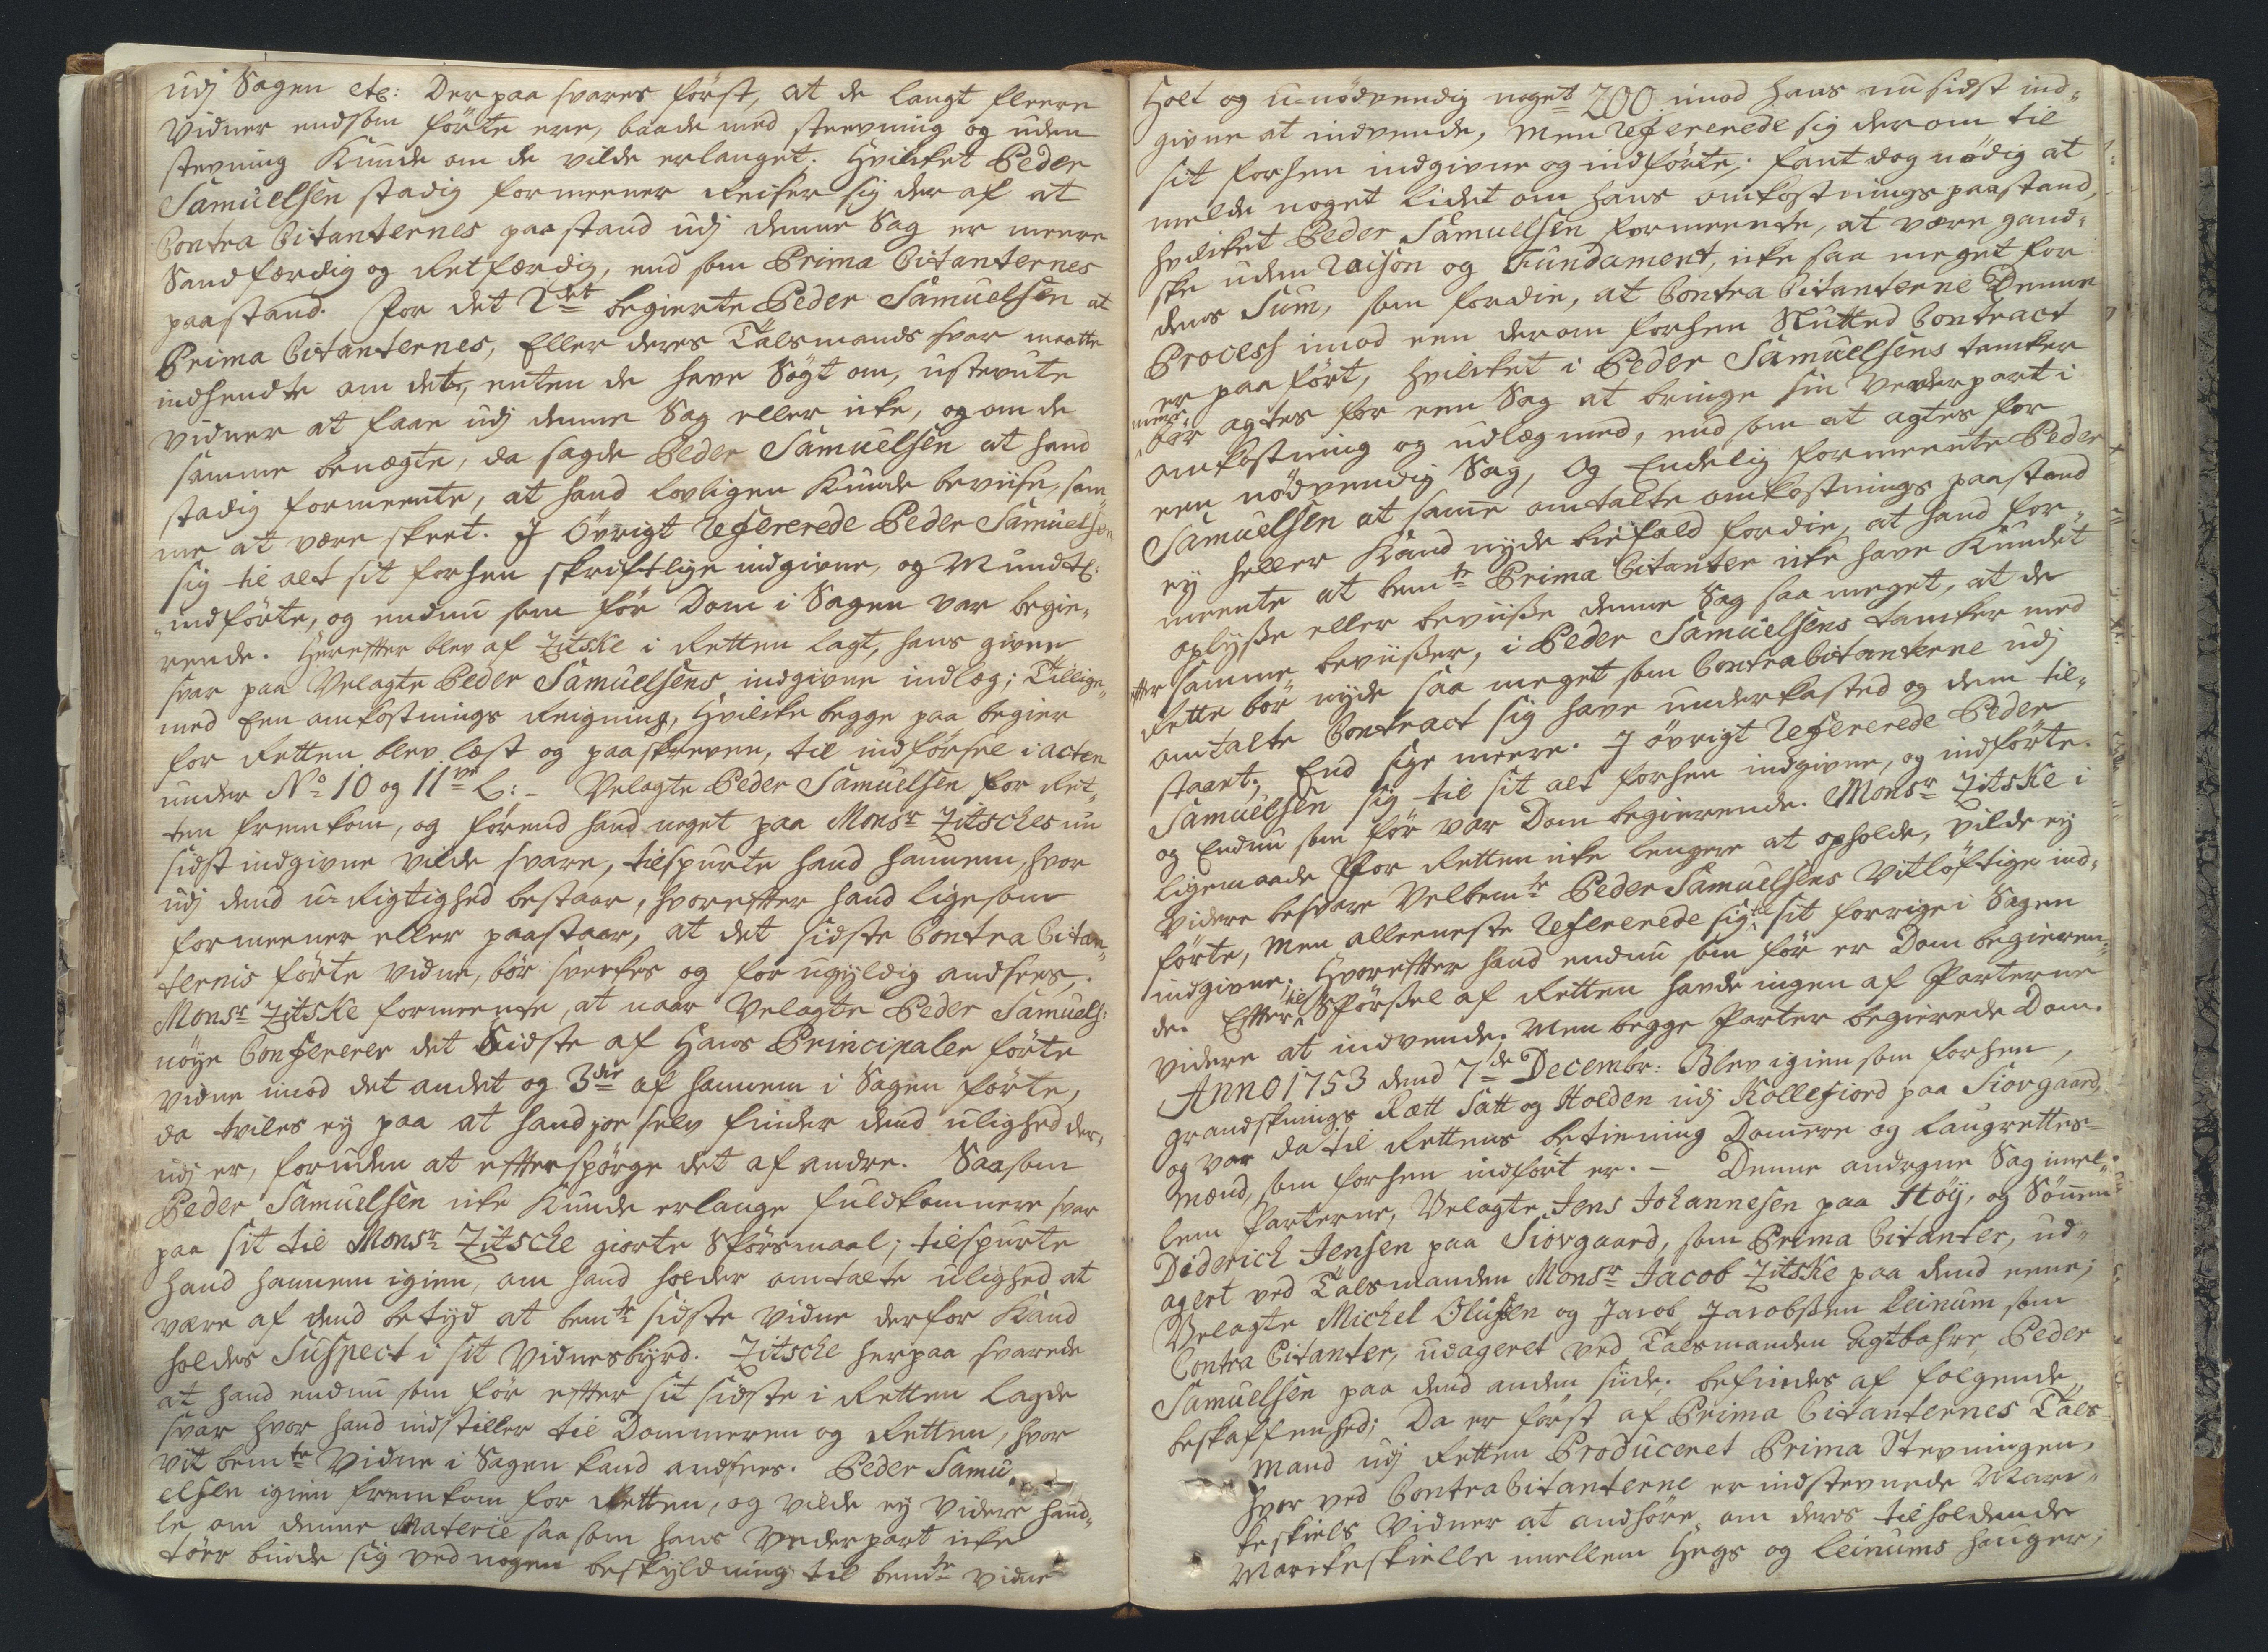 udj Sagen etc: Der paa svares först, at de langt fleere
Vidner endsom förte ere, baade med steevning og uden
stevning Kunde om de vilde erlanget. Hvilket Peder
Samuelsen stadig formeener Reiser sig der af at
Contra Citanternes paastand udj denne Sag er meere
Sandfærdig og Retfærdig, end som Prima Citanternes
paastand. For det 2det begierte Peder Samuelsen at
Prima Citanternes, Eller deres Talsmands svar maatte
indhendte om det, enten de have Sögt om, ustevnte
vidner at faae udj denne Sag eller icke, og om de
samme benægte, da sagde Peder Samuelsen at hand
stadig formeente, at hand lovligen Kunde beviise, sam¬
me at være skeet. J Övrigt Refererede Peder Samuelsen
sig til alt sit forhen skriftlige indgivne, og Mundtl:
indförte, og endnu som för Dom i Sagen var begie¬
rende. Herefter blev af Zitske i Retten lagt, hans given
svar paa Velagte Peder Samuelsens indgivne indlæg; Tillige¬
med Een omkostnings Reigning, Hvilcke begge paa begier
for Retten blev læst og paaskreven, til indförsel i acten
under No 10 og 11ve L: - Velagte Peder Samuelsen for Ret¬
ten fremkom, og förend hand noget paa Monsr Zitsches nu
sidst indgivne vilde svare, tilspurte hand hannem, hvor
udj dend u-Rigtighed bestaar, hvorefter hand ligesom
formeener eller paastaar, at det sidste Contra Citan¬
ternis förte vidne, bör svekkes og for ugyldig andsees,
Monsr Zitske formeente, at naar Velagte Peder Samuels:
nöye Confererer det Sidste af Hans Principaler förte
vidne imod det andet og 3die af hannem i Sagen förte,
da tviles ey paa at hand jo selv finder dend ulighed der¬
udj er, foruden at efterspörge det af andre. Saasom
Peder Samuelsen icke Kunde erlange fuldkomnere svar
paa sit til Monsr Zitsche giorte Spörsmaal; tilspurte
hand hannem igien, om hand holder omtalte ulighed at
være af dend betyd at bemte sidste vidne derfor Kand
holdes Suspect i sit Vidnesbyrd. Zitsche herpaa svarede
at hand endnu som för efter sit sidste i Retten lagde
svar hvor hand indstiller til Dommeren og Retten, hvor
vit bemte Vidne i Sagen kand andsees. Peder Samu
elsen igien fremkom for Retten, og vilde ey videre hand¬
le, om denne Materie saasom hans Vederpart icke
törr binde sig ved nogen beskyldning til bemte vidne
Holt og u-nödvendig noget 200 imod hans nu sidst ind¬
givne at indvende, Men Refererede sig derom til
sit forhen indgivne og indförte; fant dog nödig at
melde noget lidet om hans omkostnings paastand,
hvilket Peder Samuelsen formeente, at være gand¬
ske uden Raison og Fundament, icke saa meget for
dens Sum, som fordie, at Contra Citanterne Denne
Process imod een derom forhen Slutted Contract
er paa fört, Hvilcket i Peder Samuelsens tancker
meere
bör agtes for een Sag at bringe sin Vederpart i
omkostning og udlæg med, end som at agtes for
een nödvendig Sag, Og Endelig formeente Peder
Samuelsen at same omtalte omkostnings paastand
ey heller Kand nyde biefald fordie, at hand for¬
meente at bemte Prima Citanter icke have Kundet
oplysse eller beviisse denne Sag saa meget, at de
efter samme beviisser, i Peder Samuelsens tancker med
Rette bör nyde saa meget som Contra Citanterne udj
omtalte Contract sig have underkasted og dem til¬
staaet, End sige meere. J övrigt Refererede Peder
Samuelsen sig til sit alt forhen indgivne, og indförte.
og Endnu som för var Dom begierende. Monsr Zitske i
ligemaade for Retten icke lengere at opholde, vilde ey
videre besvare Velbemte Peder Samuelsens Vitlöftige ind¬
förte, Men alleeneste Refererede sig til sit forrige i Sagen
indgivne; Hvorefter hand endnu som för er Dom begieren¬
de. Efter tilSpörsel af Retten havde ingen af Parterne
videre at indvende. Men begge Parter begierede Dom.
Anno 1753 dend 7de Decembr: Blev igien som forhen,
grandsknings Rætt Satt og Holden udj Kollefiord paa Siorgaard,
og var da til Rettens betiening Domere og Laugrettes¬
Mænd, som forhen indfört er. - Denne andragne Sag imel¬
lem Parterne, Velagte Jens Johannesen paa Höÿ, og Sönnen
Diderich Jensen paa Siorgaard, som Prima Citanter, ud¬
agert ved Talsmanden Monsr Jacob Zitske paa dend eene;
Velagte Michel Olufsen og Jacob Jacobssen Leinum som
Contra Citanter, udageret ved Talsmanden Agtbahre Peder
Samuelsen paa dend anden siide; befindes af fölgende
beskaffenhed; Da er först af Prima Citanternes Tals¬
Mand udj Retten Produceret Prima Stevningen,
hvor ved Contra Citanterne er indstevnede Mar¬
keskiels Vidner at andhöre om deres tilholdende
Markeskielle imellem Høgs og Leinums hauger,